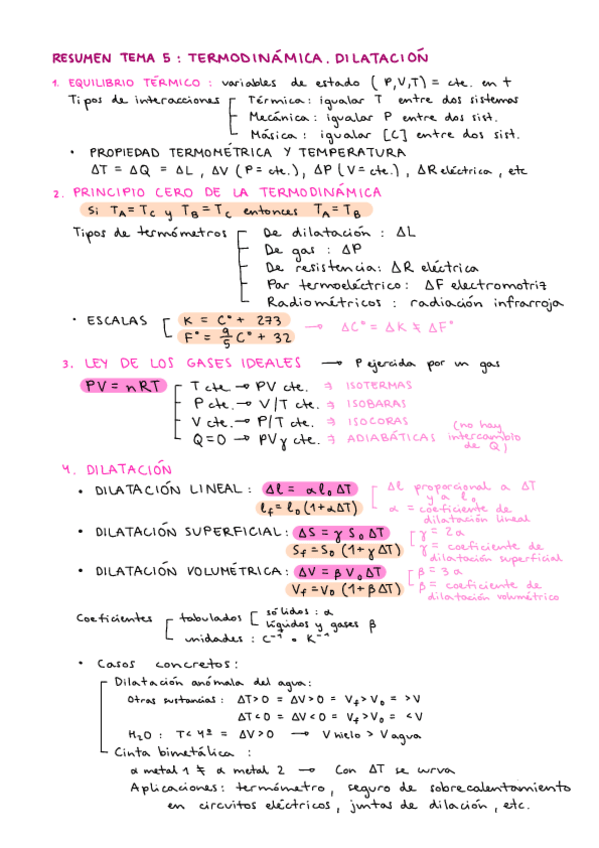 RESUMEN TEMA 5 : TERMODINÁMICA. DILATACIÓN
1. EQUILIBRIO TÉRMICO : variables de estado ( P,V,T) = cte. en t
Tipos de interacciones
Térmica : igualar T entre dos sistemas
Mecánica : igualar P entre dos sist.
Másica : igualar [C] entre dos sist.
• PROPIEDAD TERMOMÉTRICA Y TEMPERATURA
ΔT = ΔQ = ΔL , ΔV ( P = cte.) , ΔP ( V = cte.) , ΔR eléctrica , etc
2. PRINCIPIO CERO DE LA TERMODINÁMICA
Si TA = TC y TB = TC entonces TA = TB
Tipos de termómetros
De dilatación : ΔL
De gas : ΔP
De resistencia: ΔR eléctrica
Par termoeléctrico : ΔF electromotriz
Radiométricos : radiación infrarroja
• ESCALAS
K = C° + 273
F° = 9/5 C° + 32
→ ΔC° = ΔK ≠ ΔF°
3. LEY DE LOS GASES IDEALES → P ejercida por un gas
PV = nRT
T cte → PV cte. ⇒ ISOTERMAS
P cte. → V/T cte. ⇒ ISOBARAS
V cte. → P/T cte. ⇒ ISOCORAS
Q = 0 → PVγ cte. ⇒ ADIABÁTICAS (no hay intercambio de Q)
4. DILATACIÓN
• DILATACIÓN LINEAL : Δl = α l0 ΔT
lf = l0 (1+αΔT)
Δl proporcional a ΔT
y a l0
α = coeficiente de
dilatación lineal
• DILATACIÓN SUPERFICIAL : ΔS = γ S0 ΔT
Sf = S0 (1+γΔT)
γ = 2α
γ = coeficiente de
dilatación superficial
• DILATACIÓN VOLUMÉTRICA : ΔV = β V0 ΔT
Vf = V0 (1+βΔT)
β = 3α
β = coeficiente de
dilatación volumétrico
Coeficientes
tabulados
sólidos : α
líquidos y gases β
unidades : C⁻¹ o K⁻¹
• Casos concretos :
Dilatación anómala del agua:
Otras sustancias : ΔT>0 = ΔV>0 = Vf>V0 = >V
ΔT<0 = ΔV<0 = Vf>V0 = <V
H2O : T< 4º = ΔV>0 → V hielo > V agua
Cinta bimetálica :
α metal 1 ≠ α metal 2 → Con ΔT se curva
Aplicaciones : termómetro, seguro de sobrecalentamiento
en circuitos eléctricos, juntas de dilación, etc.